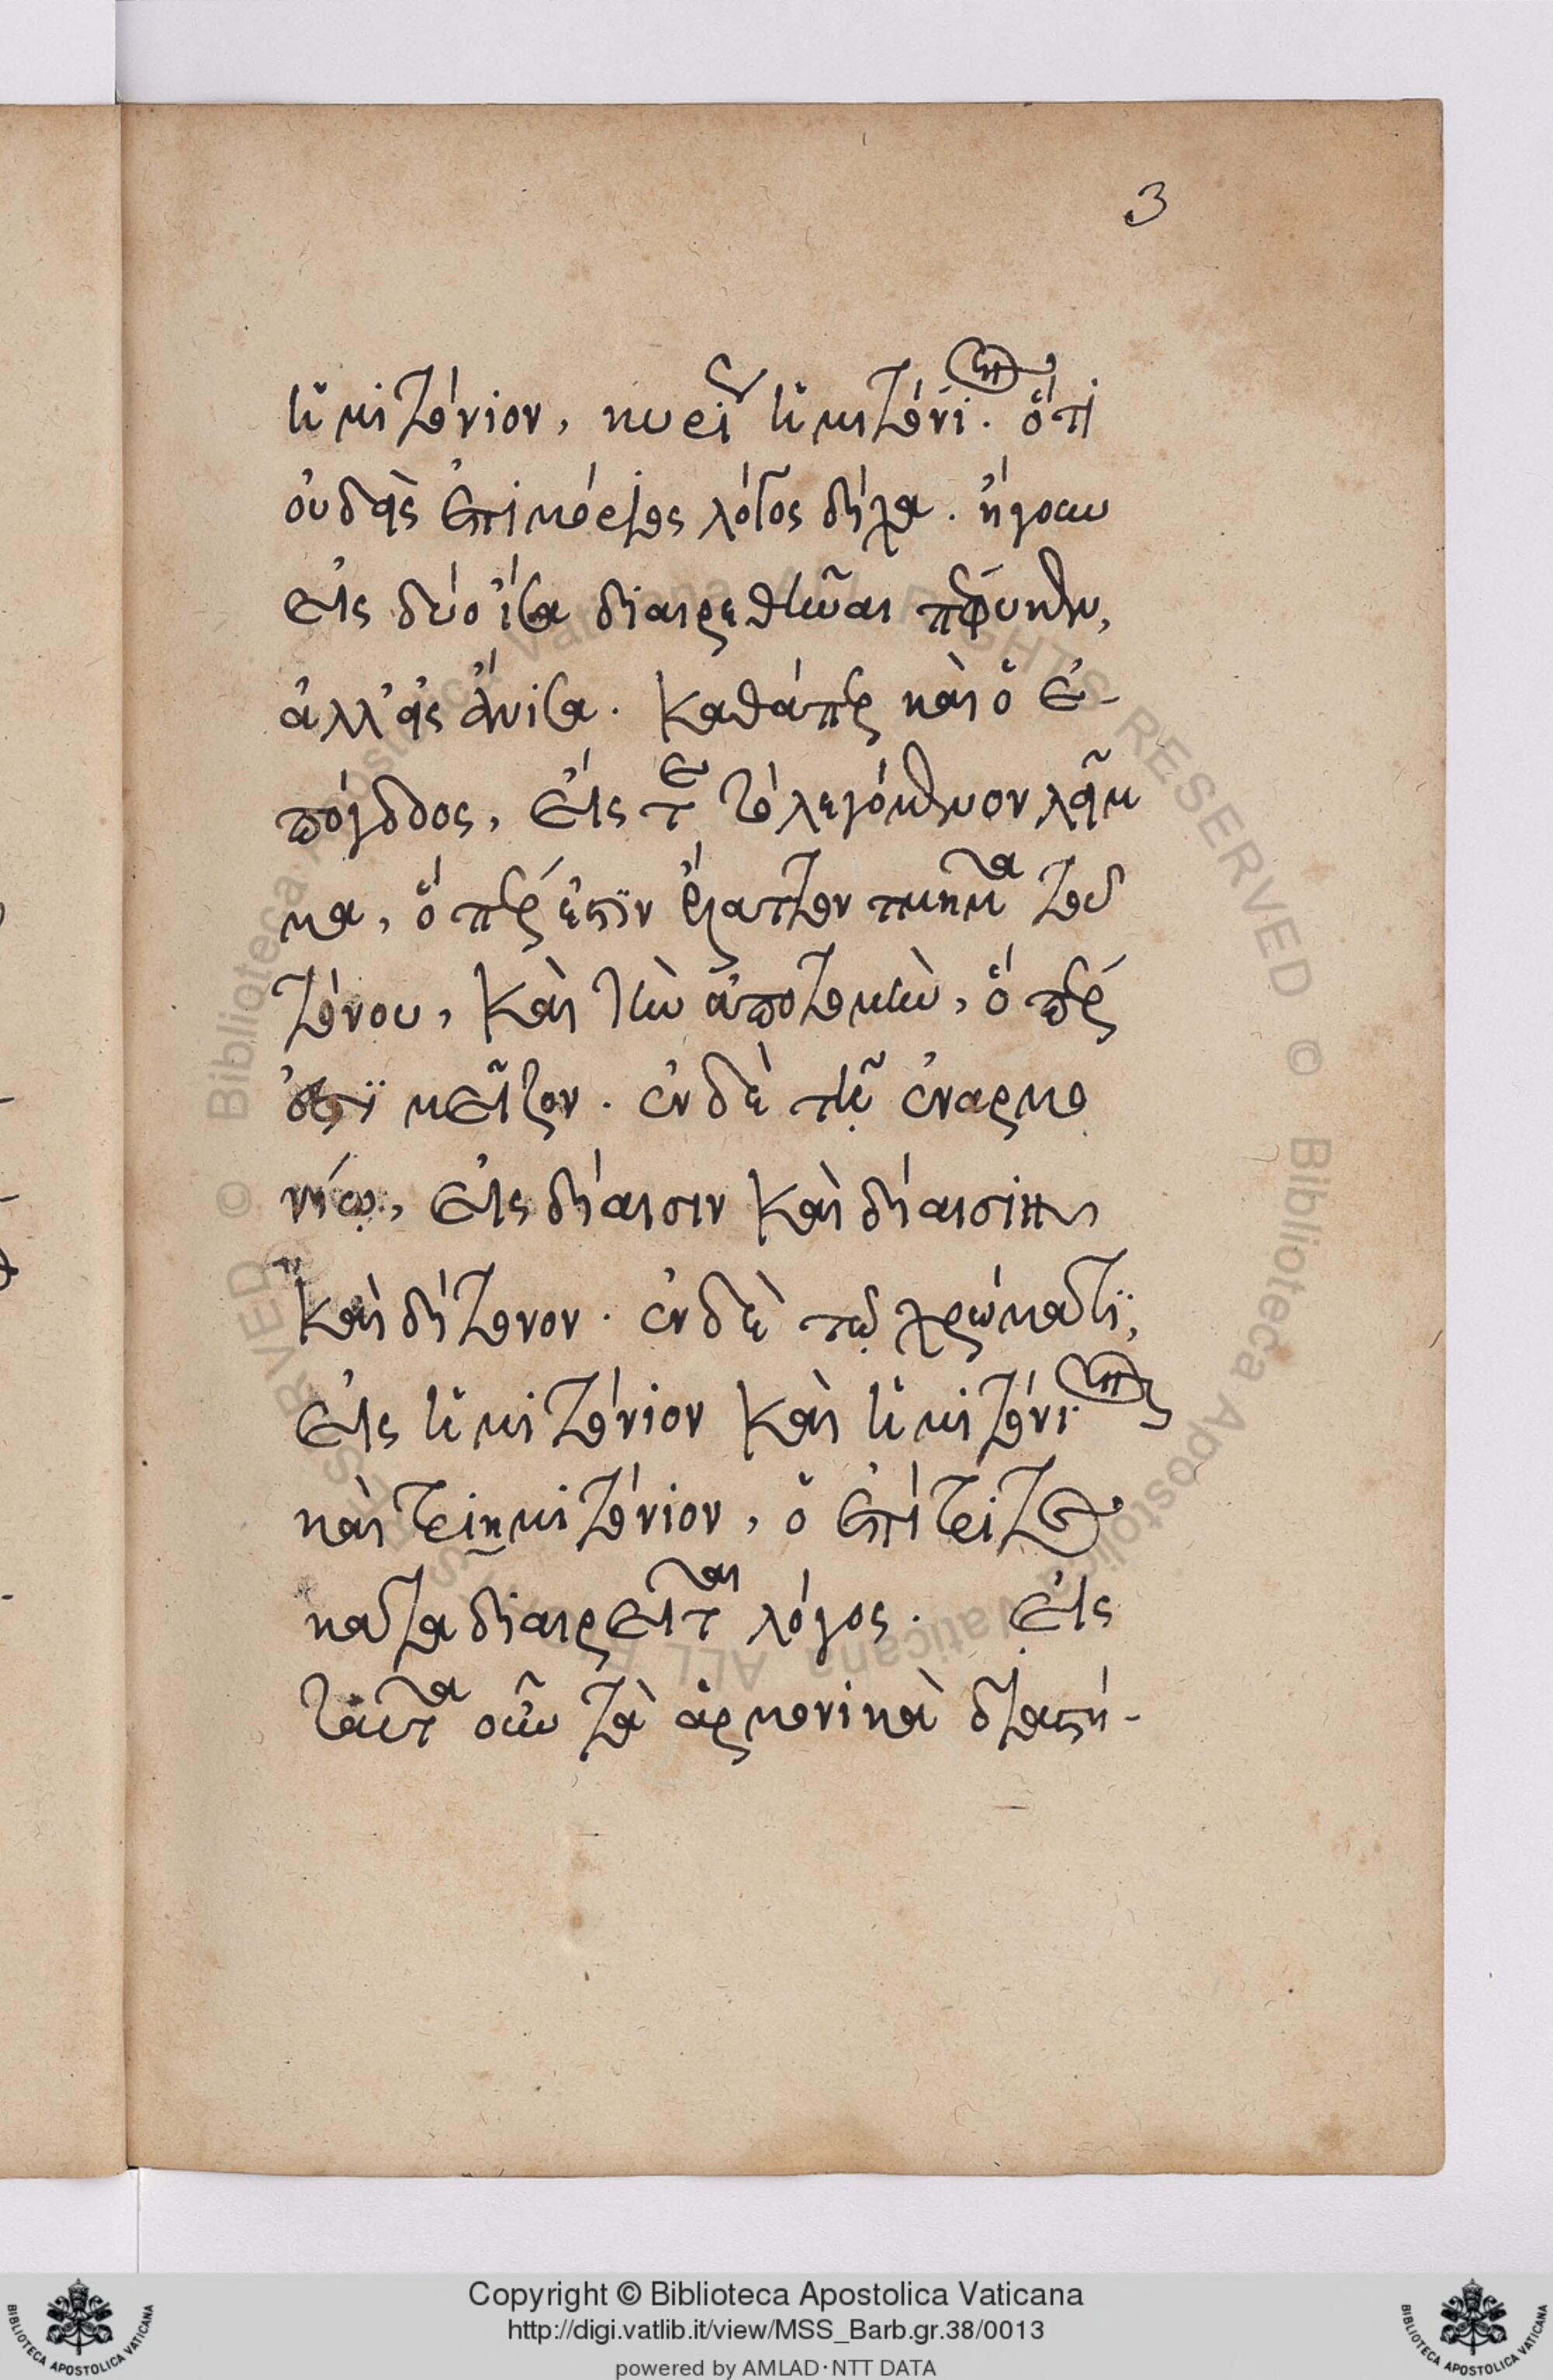 3
ἡμιτόνιον, κυρί ἡμιτόνι. ὅτι
οὐδεὶς ἐπιμόριος λόγος δίχα. ἤγουν
εἰς δύο ἴσα διαιρεθῆναι πέφυκεν,
ἀλλ' εἰς ἄνισα. καθάπερ καὶ ὁ ἐ-
πόγδοος, εἴς τε τὸ λεγόμενον λεῖμ
μα, ὅπερ ἐστὶν ἔλαττον τμῆμα τοῦ
τόνου, καὶ τὴν ἀποτομὴν, ὅπερ
ἐστὶ μεῖζον. ἐν δὲ τῷ ἐναρμο
νίῳ, εἰς δίεσιν καὶ δίεσιν
καὶ δίτονον. ἐν δὲ τῷ χρώματι,
εἰς ἡμιτόνιον καὶ ἡμιτόνι
καὶ τριημιτόνιον, ὁ ἐπίτριτος
κατα διαιρεῖται λόγος. εἰς
ταῦτα οὖν τὰ ἁρμονικὰ διαστή-
Copyright © Biblioteca Apostolica Vaticana
http://digi.vatlib.it/view/MSS_Barb.gr.38/0013
powered by AMLAD·NTT DATA
BIBLIOTECA APOSTOLICA VATICANA
BIBLIOTECA APOSTOLICA VATICANA